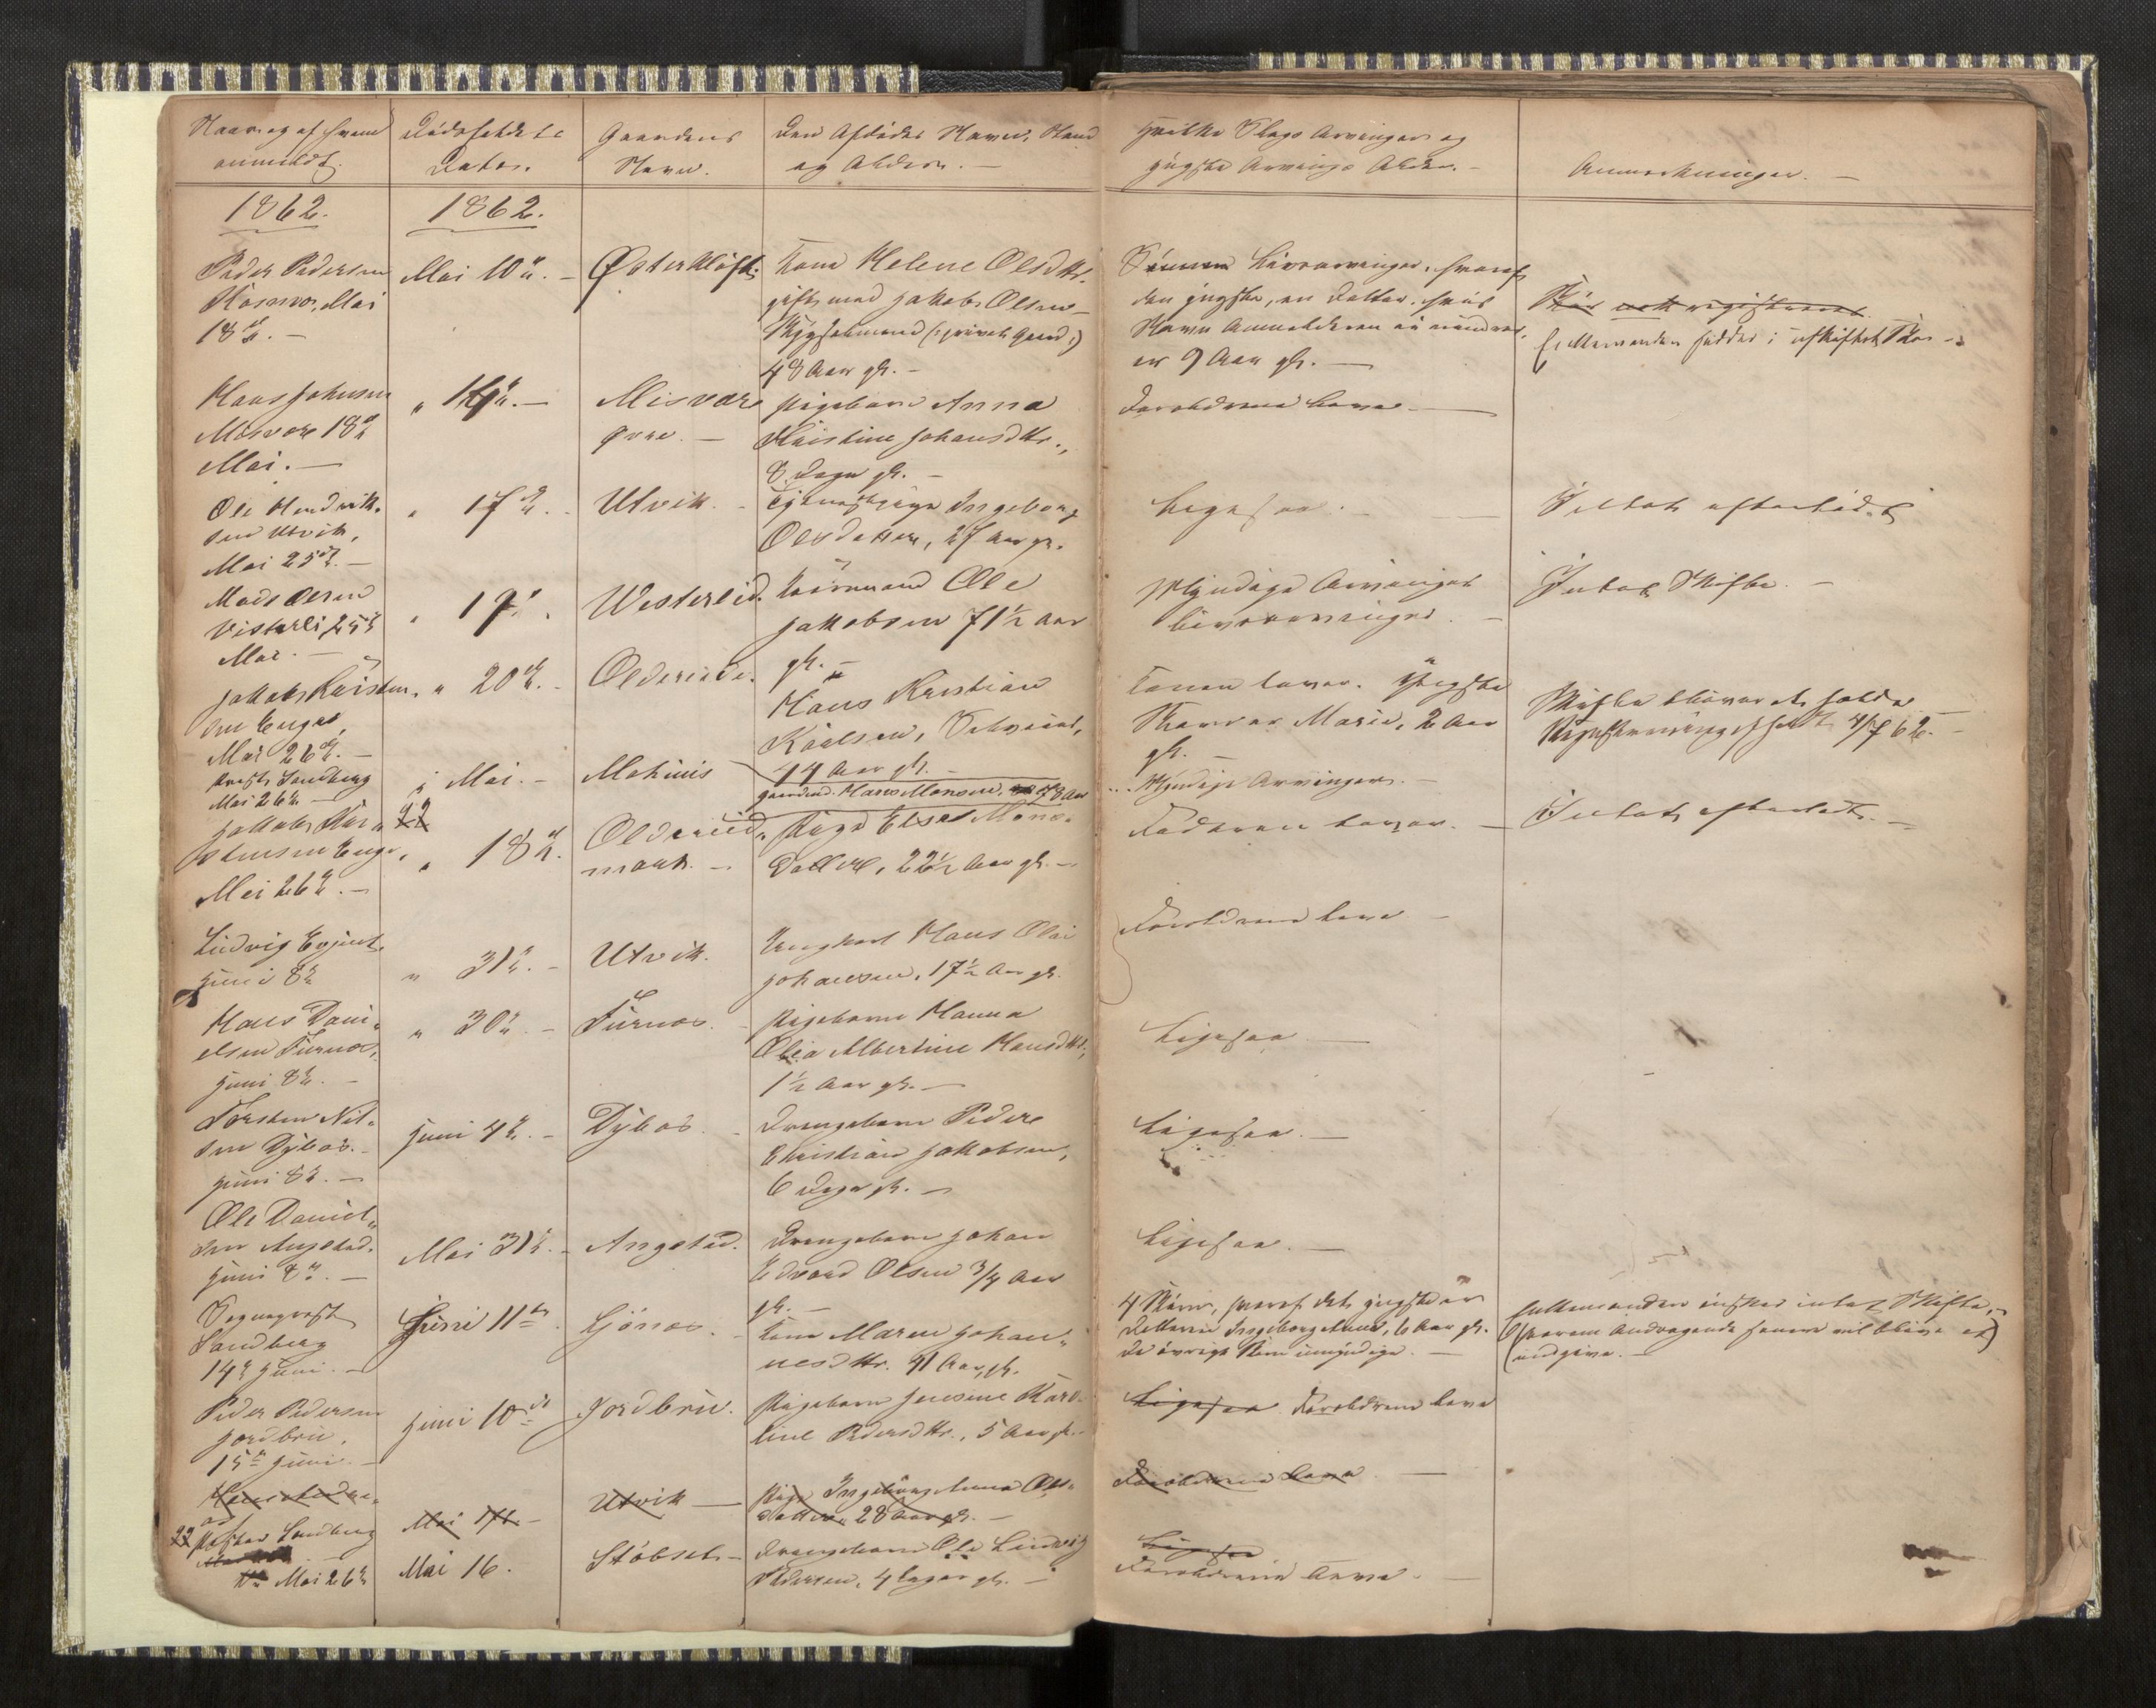 Naar og af hvem
anmeldt.
Dødsfaldets
Datum.
Gaardens
Navn.
Den Afdødes Navn, Stand
og Alder. —
Hvilke Slags Arvinger og
yngste Arvings Alder. —
Anmærkninger. —
1862.
1862.
Peder Pedersen
Mai
18de. —
Mai 10de. —
Østerkløft.
Kone Helene Olsdtr.
gift med Jakob Olsen
48 Aar gl. —
Livsarvinger, hvoraf
den yngste, en Datter, hvis
Navn Anmelderen ei
er 9 Aar gl. —
Enkemanden sidder i uskiftet Bo —
Hans Johnsen
Misvær 18de
Mai. —
" 14de. —
Misvær
øvre. —
Pigebarn Anna
Kristine Johansdtr.,
8 Dage gl. —
Forældrene leve —
Ole Hendrik-
sen Utvik,
Mai 25de. —
" 17de. —
Utvik. —
Tjenestepige Ingeborg
Olsdatter, 27 Aar gl.
Ligesaa. —
Intet efterladt
Mads Olsen
Vesterli 25de
Mai. —
" 19de.
Westerlid.
Kaarmand Ole
Jakobsen 71½ Aar
gl. —
Myndige Arvinger
Livsarvinger. —
Intet Skifte. —
Jakob Kristen-
sen Enge,
Mai 26de. —
" 20de. —
Oldereide.
Hans Kristian
44 Aar gl. —
Konen lever. Yngste
Marie, 2 Aar
gl. —
Skifte bliver at holde
4/7 62. —
Provst Sandberg
Mai 26de —
i Mai. —
Mohuus
Hans Monsen, 73 Aar
Myndige Arvinger. —
Jakob Kri-
stensen Enge,
Mai 26de. —
22
" 18de.
Oldereid-
mark. —
Pige Else Mons-
datter, 22½ Aar gl. —
Faderen lever. —
Intet efterladt. —
Ludvig Evjent
Juni 8de
" 31te. —
Utvik.
Ungkarl Hans Olai
Johansen, 17½ Aar gl.
Forældrene leve —
Hans Dani-
elsen Furnes,
Juni 8de. —
" 30te. —
Furnes. —
Pigebarn Hanna
Olea Albertine Hansdtr.,
1½ Aar gl. —
Ligesaa —
Torsten Nil-
sen Dybos. —
Juni 8de. —
Juni 4de. —
Dybos. —
Drengebarn Peder
Christian Jakobsen,
6 Dage gl. —
Ligesaa. —
Ole Daniel-
sen Angstad.
Juni 8de. —
Mai 31te. —
Angstad.
Drengebarn Johan
Edvard Olsen 3/4 Aar
gl. —
Ligesaa. —
Sogneprest
Sandberg
14de Juni. —
Juni 11te.
Ljønes. —
Kone Maren Johan-
nesdtr. 41 Aar gl.
4 Børn, hvoraf det yngste er
Datteren Ingeborg Anna, 6 Aar gl.
De øvrige Børn umyndige. —
Enkemanden ønsker intet Skifte,
(hvorom Andragende senere vil blive at
indgive. —
Peder Pedersen
Jordbru.
15de Juni. —
Juni 10de
Jordbru.
Pigebarn Jensine Karo-
line Pedersdtr., 5 Aar gl.
Ligesaa Forældrene leve
Mai 17de —
Utvik —
Pige Ingeborg Anna Ols-
datter 28 Aar gl. —
Forældrene leve —
22 Pastor Sandberg
Mai 26de
Mai 16.
Støbset —
Drengebarn Ole Ludvig
Pedersen, 4 Dage gl. —
Ligesaa
Forældrene leve. —